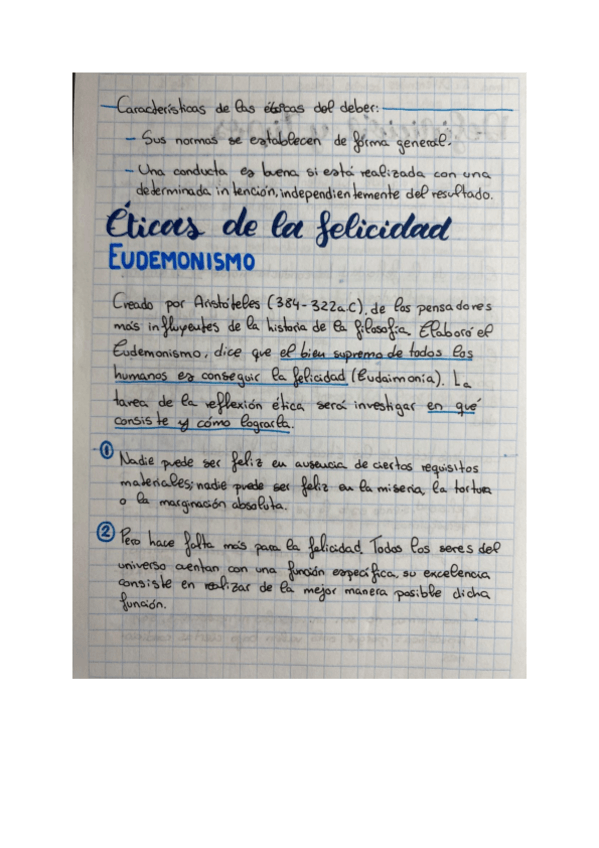 Características de las éticas del deber:
- Sus normas se establecen de forma general.
- Una conducta es buena si está realizada con una
determinada intención, independientemente del resultado.
Éticas de la felicidad
EUDEMONISMO
Creado por Aristóteles (384-322a.C), de los pensadores
más influyentes de la historia de la filosofía. Elaboró el
Eudemonismo, dice que el bien supremo de todos los
humanos es conseguir la felicidad (Eudaimonia). La
tarea de la reflexión ética será investigar en qué
consiste y cómo lograrla.
1 Nadie puede ser feliz en ausencia de ciertos requisitos
materiales; nadie puede ser feliz en la miseria, la tortura
o la marginación absoluta.
2 Pero hace falta más para la felicidad. Todos los seres del
universo cuentan con una función específica, su excelencia
consiste en realizar de la mejor manera posible dicha
función.